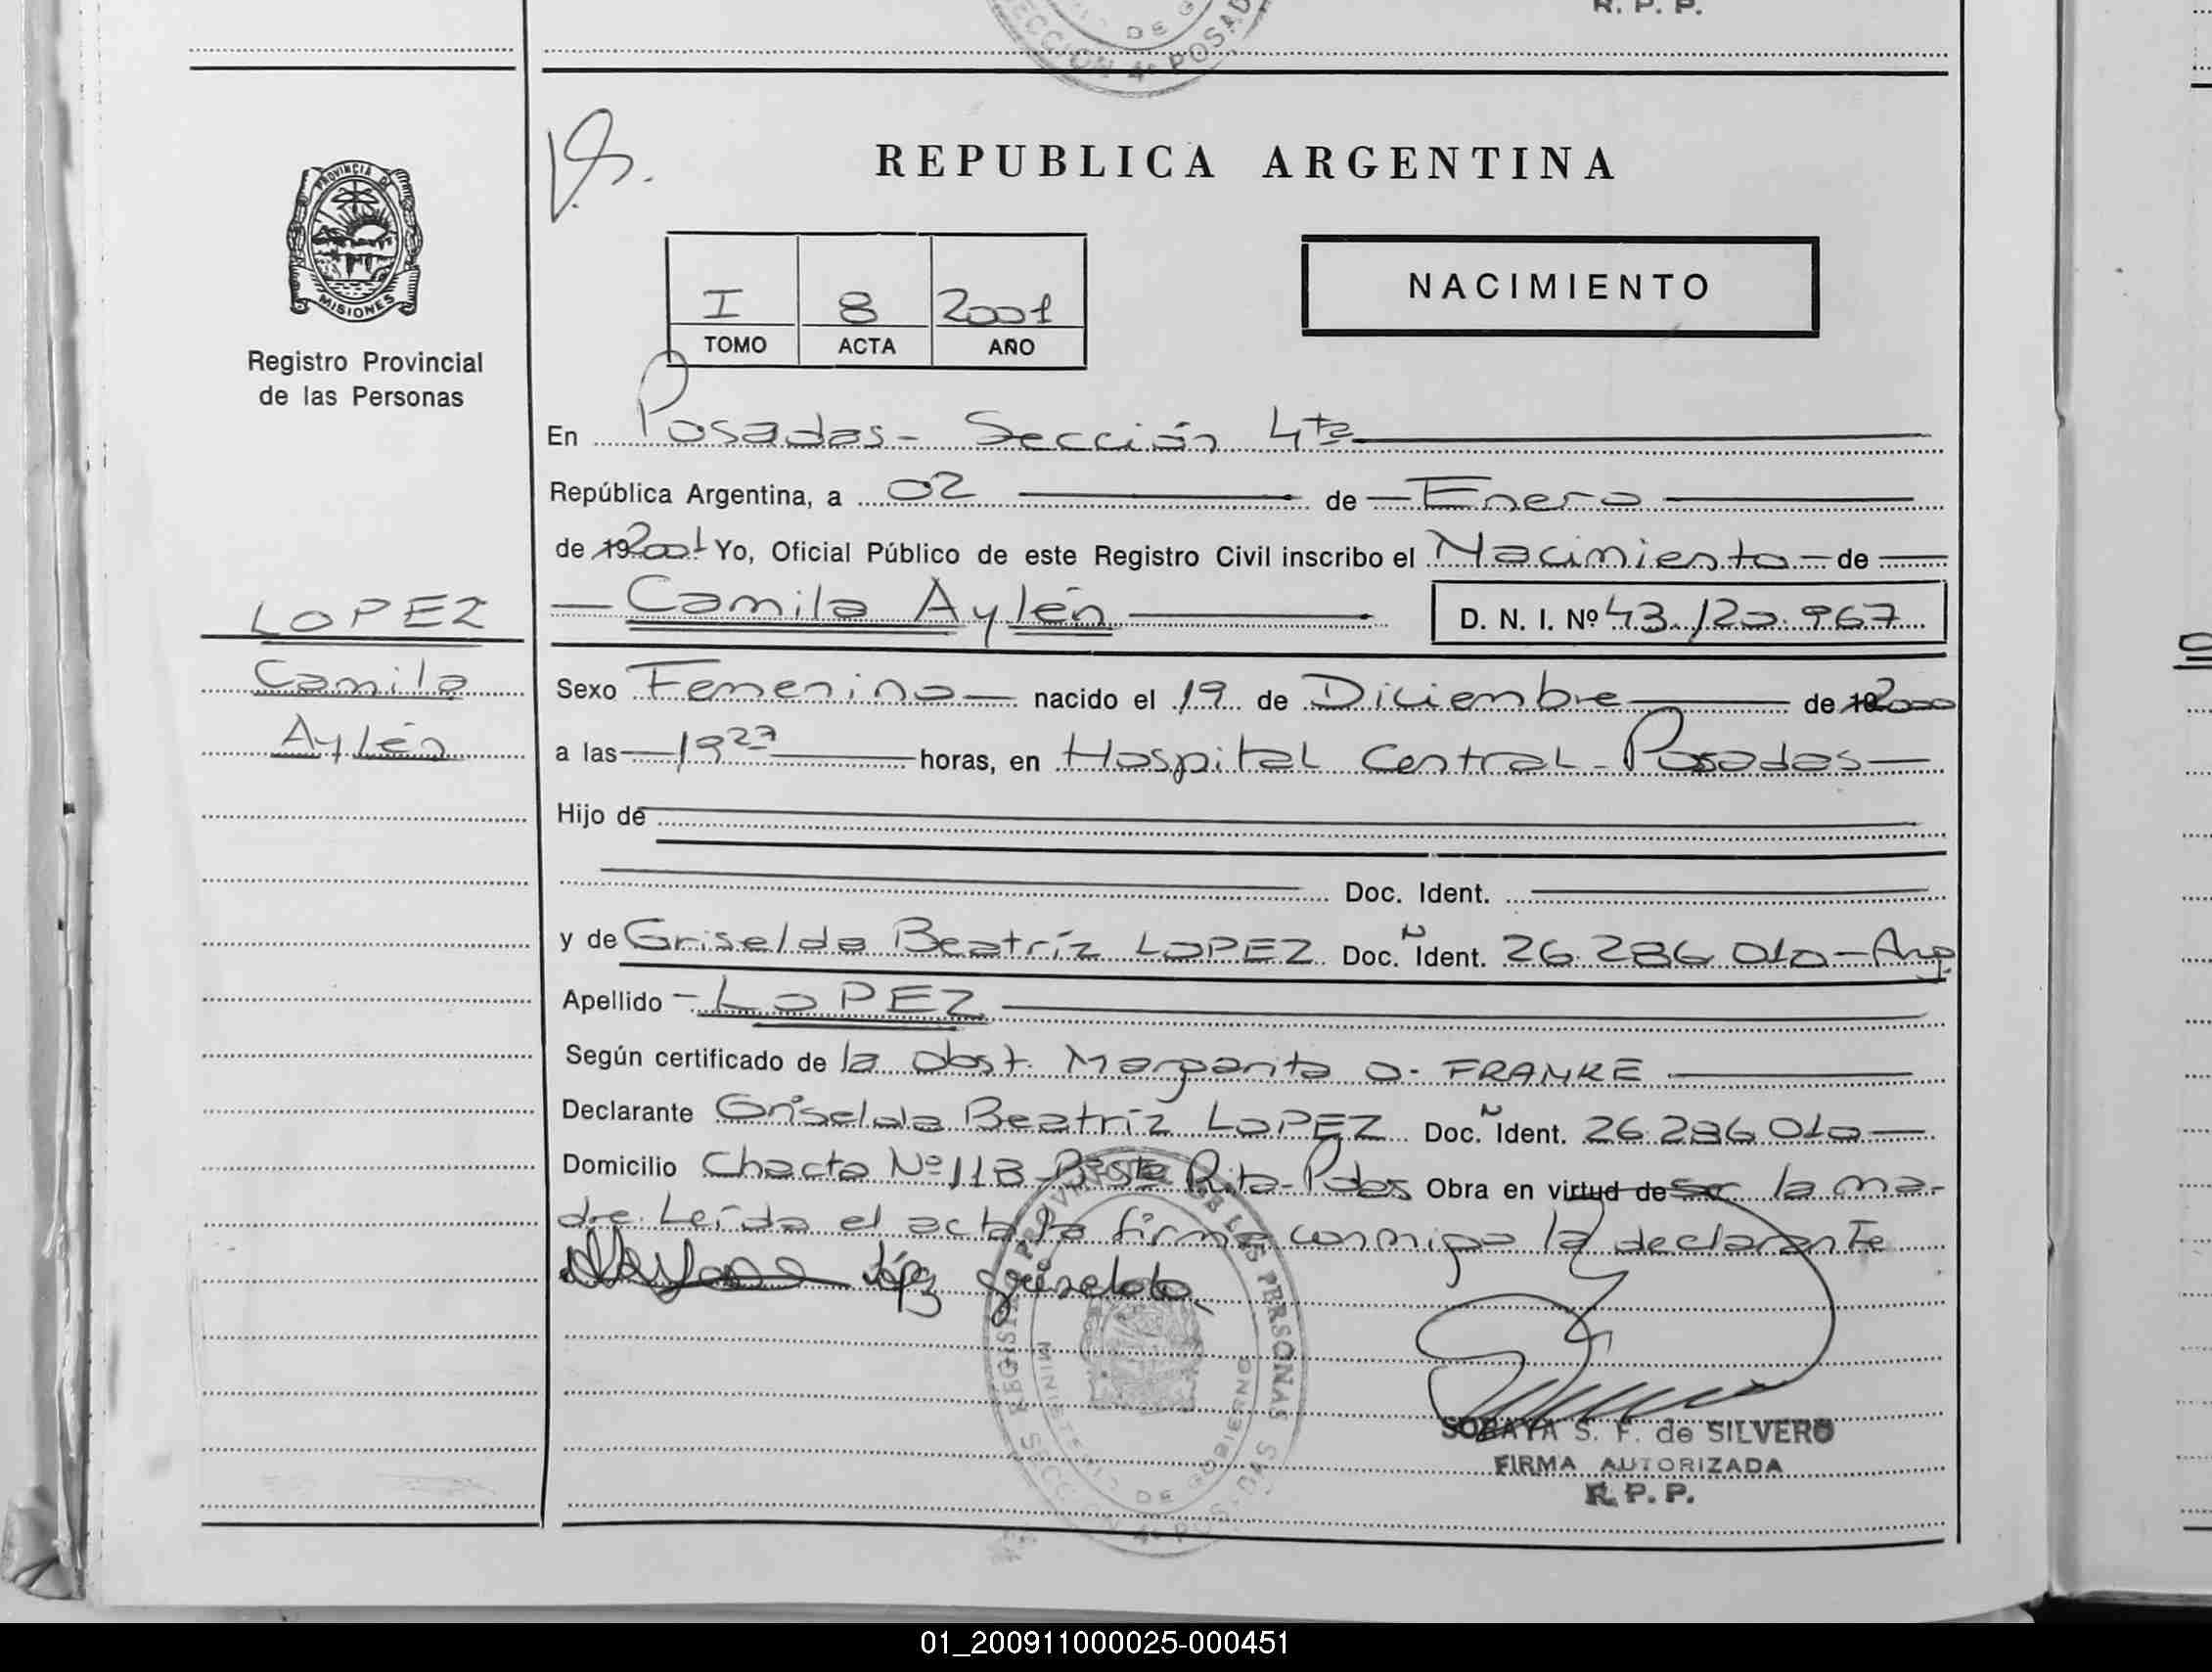 R. P. P.
DE G
SECCION 4ª POSAD
PROVINCIA DE
MISIONES
Registro Provincial
de las Personas
LOPEZ
Camila
Aylén
REPUBLICA ARGENTINA
I 8 2001
TOMO ACTA AÑO
NACIMIENTO
En Posadas - Sección 4ta
República Argentina, a 02 de Enero
de 19 2001 Yo, Oficial Público de este Registro Civil inscribo el Nacimiento de
Camila Aylén D. N. I. Nº 43.120.967
Sexo Femenino nacido el 19 de Diciembre de 19 2000
a las 19 27 horas, en Hospital Central - Posadas
Hijo de
Doc. Ident.
y de Griselda Beatríz LOPEZ Doc. Ident. 26.286.010 - Arg.
Apellido LOPEZ
Según certificado de la Obst. Margarita O. FRANKE
Declarante Griselda Beatríz LOPEZ Doc. Ident. 26.286.010
Domicilio Chacra Nº 118 Bº Sta Rita - Pdas Obra en virtud de ser la ma-
dre. Leída el acta, la firma conmigo la declarante
López Griselda
REGISTRO PROVINCIAL DE LAS PERSONAS
MINISTERIO DE GOBIERNO
SECCION 4ª POSADAS
SORAYA S. F. de SILVERO
FIRMA AUTORIZADA
R. P. P.
01_200911000025-000451